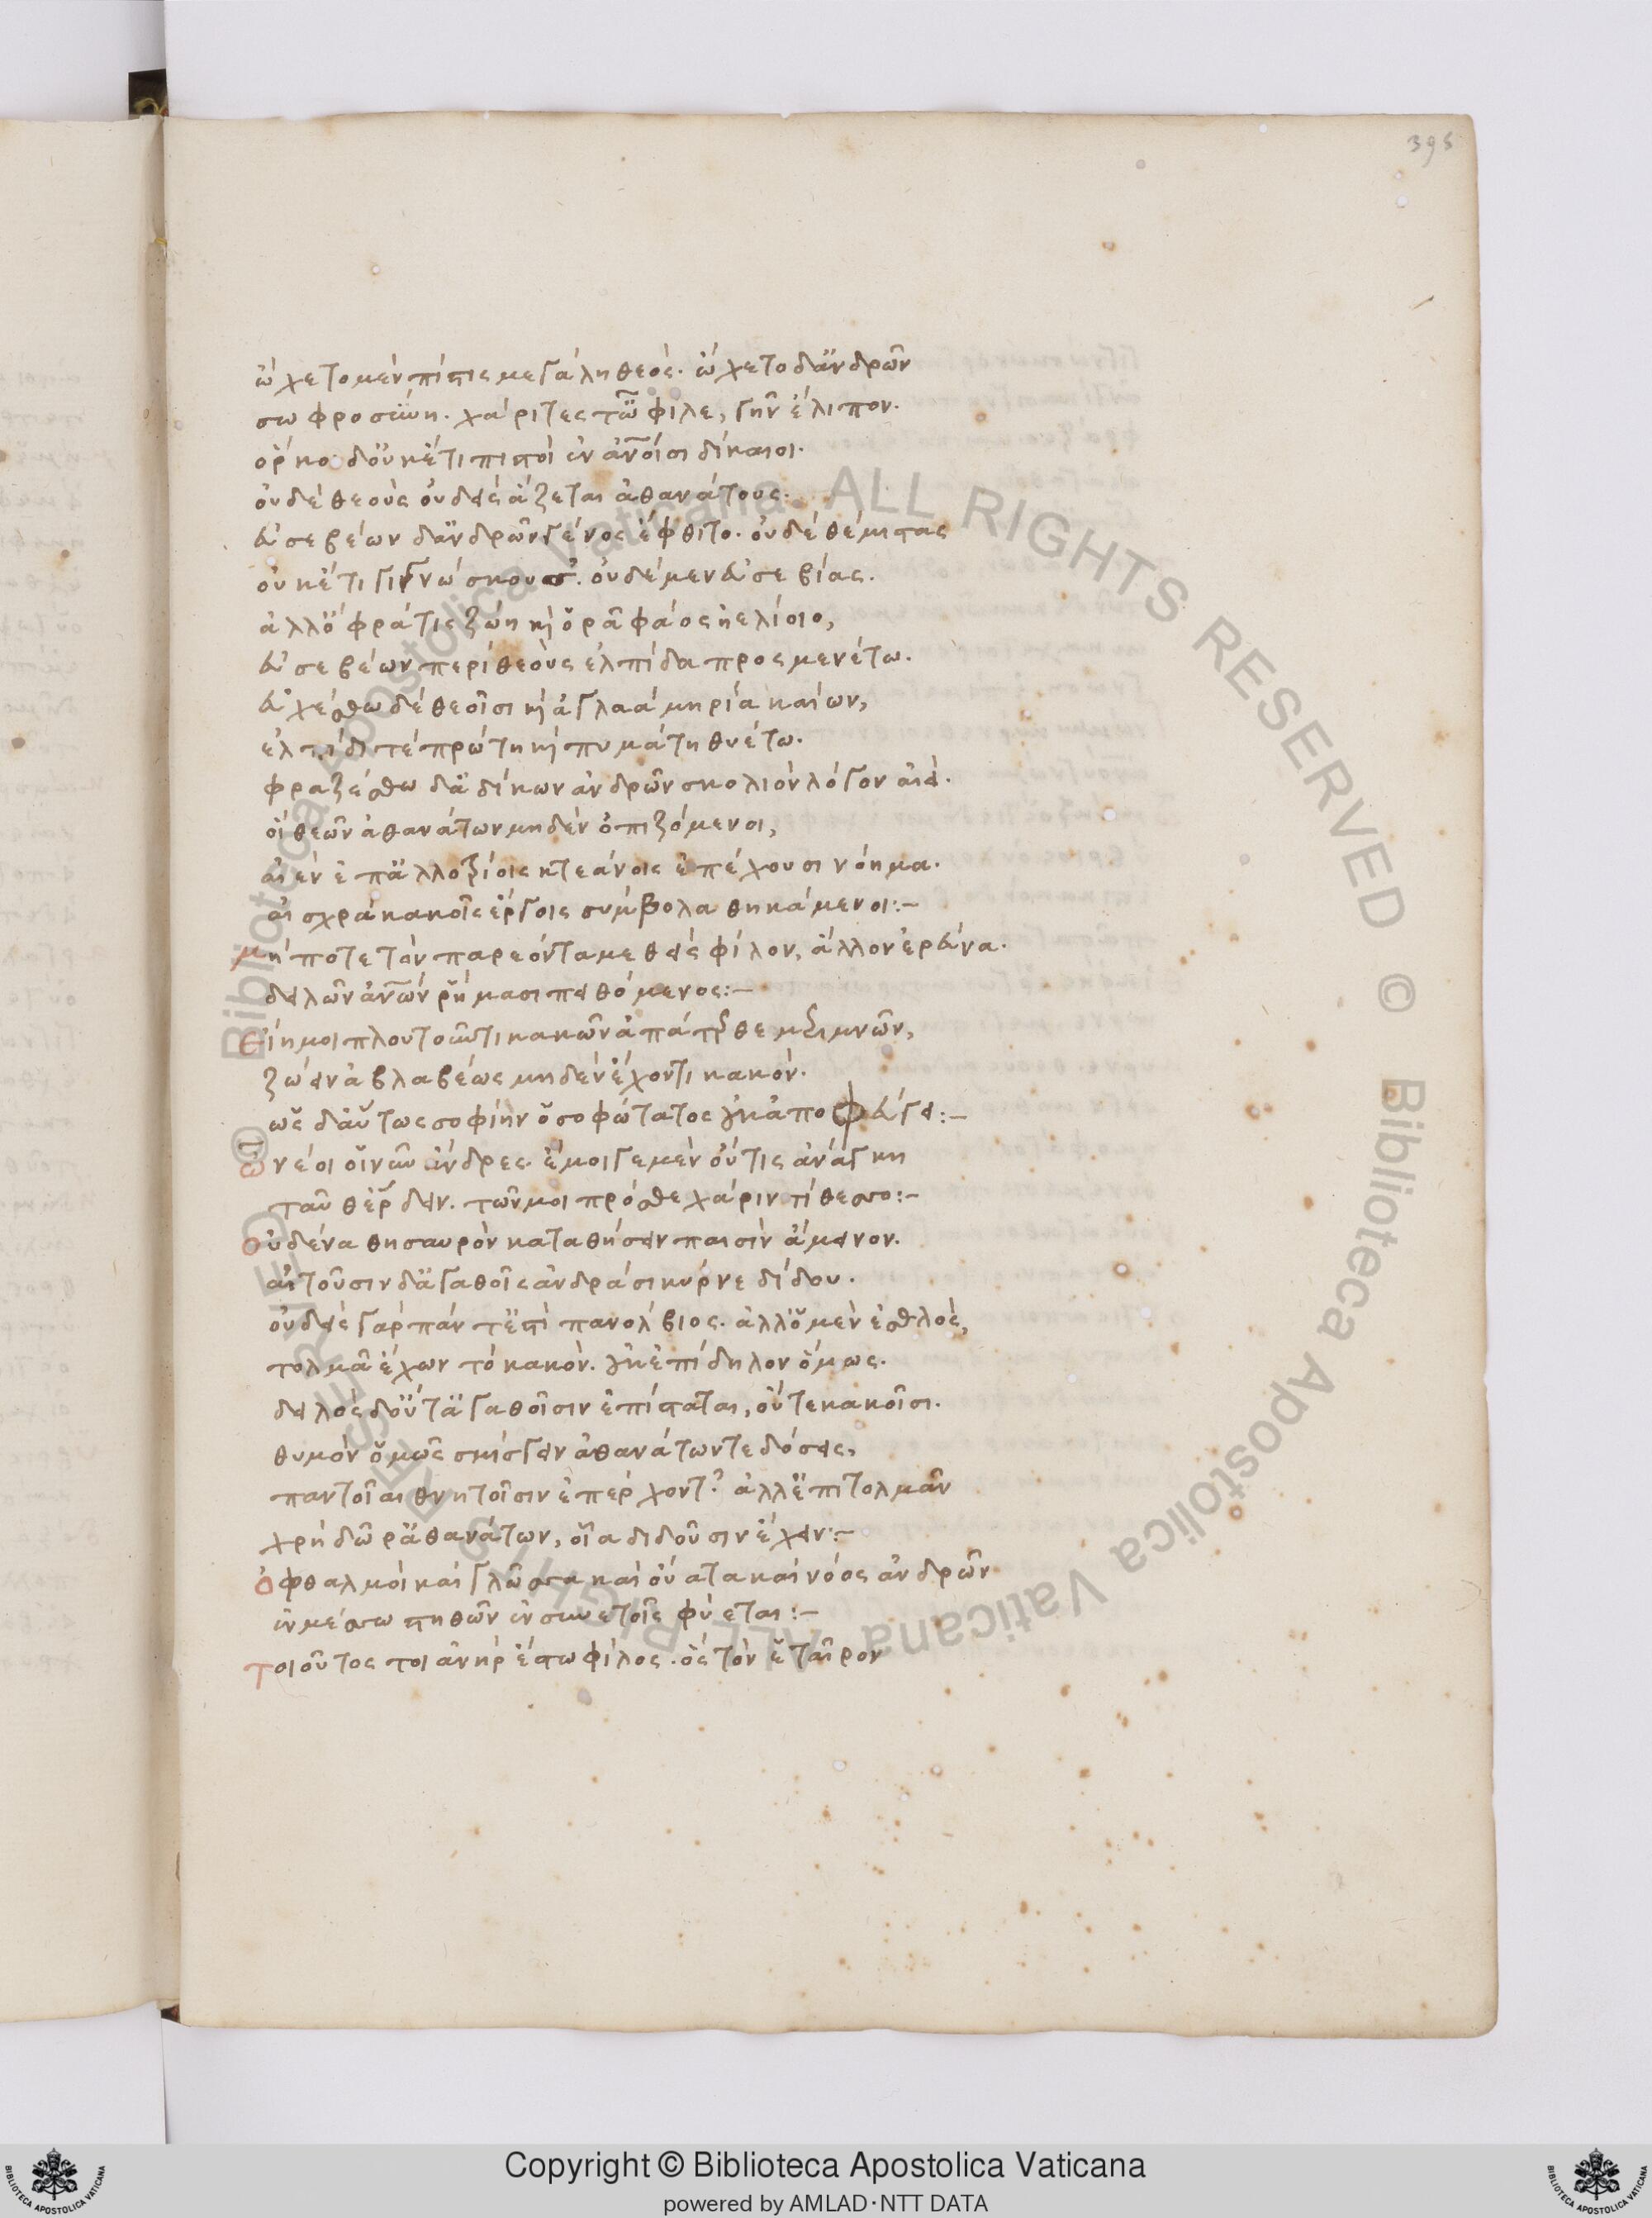 395
ὤχετο μὲν πίστις μεγάλη θεός. ὤχετο δ' ἀνδρῶν
σωφροσύνη. χάριτές τ' ὦ φίλε, γῆν ἔλιπον.
ὅρκοι δ' οὐκέτι πιστοὶ ἐν ἀν̅οίσι δίκαιοι.
οὐδὲ θεοὺς οὐδεὶς ἅζεται ἀθανάτους.
εὐσεβέων δ' ἀνδρῶν γένος ἔφθιτο. οὐδὲ θέμιστας
οὐκέτι γιγνώσκουσ'. οὐδὲ μὲν εὐσεβίας.
ἀλλ' ὄφρα τις ζώη κὴ ὁρᾶ φάος ἠελίοιο,
εὐσεβέων περὶ θεοὺς ἐλπίδα προσμενέτω.
εὐχέσθω δὲ θεοῖσι κὴ ἀγλαὰ μηρία καίων,
ἐλπίδι τὲ πρώτη κὴ πυμάτη θυέτω.
φραζέσθω δ' ἀδίκων ἀνδρῶν σκολιὸν λόγον αἰεί.
οἳ θεῶν ἀθανάτων μηδὲν ὀπιζόμενοι,
αἰὲν ἐπ' ἀλλοτρίοις κτεάνοις ἐπέχουσι νόημα.
αἰσχρὰ κακοῖς ἔργοις σύμβολα θηκάμενοι:-
μήποτε τὸν παρεόντα μεθεὶς φίλον, ἄλλον ἐρεύνα.
δειλῶν ἀν̅ων ῥήμασι πειθόμενος:-
Εἴη μοι πλουτοῦντι κακῶν ἀπάτερθε μεριμνῶν,
ζώειν ἀβλαβέως μηδὲν ἔχοντι κακόν.
ὣς δ' αὕτως σοφίην ὁ σοφώτατος οὐκ ἀποφεύγει:-
ὦ νέοι οἱ νῦν ἄνδρες. ἐμοί γε μὲν οὔτις ἀνάγκη
ταῦθ' ἔρδειν. τῶν μοι πρόσθε χάριν τίθεσο:-
οὐδένα θησαυρὸν καταθήσειν παισὶν ἀμείνον.
αἰτοῦσιν δ' ἀγαθοῖς ἀνδράσι κύρνε δίδου.
οὐδεὶς γὰρ πάντ' ἐστὶ πανόλβιος. ἀλλ' ὁ μὲν ἐσθλὸς,
τολμᾶ ἔχων τὸ κακόν. οὐκ ἐπίδηλον ὅμως.
δειλὸς δ' οὔτ' ἀγαθοῖσιν ἐπίσταται, οὔτε κακοῖσι.
θυμὸν ὁμῶς μίσγειν ἀθανάτων τε δόσεις,
παντοῖαι θνητοῖσιν ἐπέρχοντ' ἀλλ' ἐπιτολμᾶν
χρὴ δῶρ' ἀθανάτων, οἷα διδοῦσιν ἔχειν:-
ὀφθαλμοὶ καὶ γλῶσσα καὶ οὔατα καὶ νόος ἀνδρῶν
ἐν μέσσω στηθῶν ἐν συνετοῖς φύεται:-
τοιοῦτος τοι ἀνὴρ ἔστω φίλος. ὃς τὸν ἑταῖρον
© Biblioteca Apostolica Vaticana ALL RIGHTS RESERVED © Biblioteca Apostolica Vaticana ALL RIGHTS RESERVED
Copyright © Biblioteca Apostolica Vaticana
powered by AMLAD·NTT DATA
BIBLIOTECA APOSTOLICA VATICANA
BIBLIOTECA APOSTOLICA VATICANA